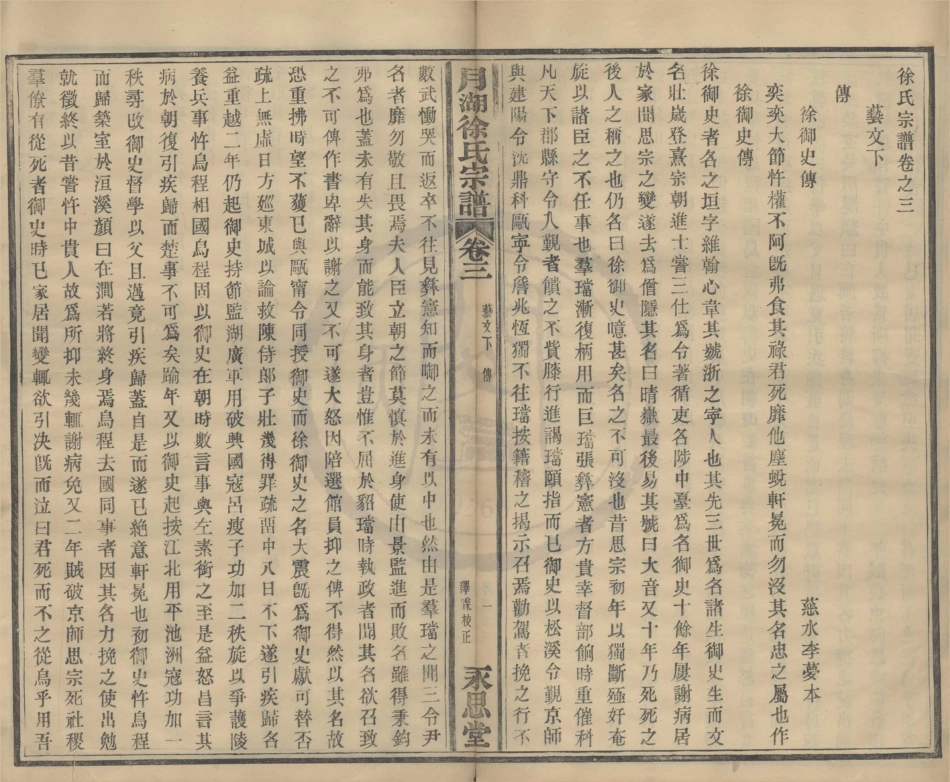 徐氏宗譜卷之三
藝文下
傳
徐御史傳
慈水李夢本
奕奕大節忤權不阿既弗食其祿君死靡他塵蛻軒冕而勿沒其名忠之屬也作
徐御史傳
徐御史者名之垣字維翰心韋其號浙之寧人也其先三世爲名諸生御史生而文
名壯歲登熹宗朝進士嘗三仕爲令著循吏名陟中臺爲名御史十餘年屢謝病居
於家聞思宗之變遂去爲僧隱其名曰晴嶽最後易其號曰大音又十年乃死死之
後人之稱之也仍名曰徐御史噫甚矣名之不可沒也昔思宗初年以獨斷殛奸奄
旋以諸臣之不任事也羣璫漸復柄用而巨璫張彝憲者方貴幸督部餉時重催科
凡天下郡縣守令入覲者饋之不貲膝行進謁璫頤指而已御史以松溪令覲京師
與建陽令沈鼎科甌寧令詹兆恆獨不往璫按籍稽之揭示召焉勸駕者挽之行不
月湖徐氏宗譜
卷三
藝文下 傳
一
譯霖校正
永思堂
數武慟哭而返卒不往見彝憲知而啣之而未有以中也然由是羣璫之聞三令尹
名者靡勿敬且畏焉夫人臣立朝之節莫慎於進身使由景監進而敗名雖得秉鈞
弗爲也蓋未有失其身而能致其身者豈惟不屈於貂璫時執政者聞其名欲召致
之不可俾作書卑辭以謝之又不可遂大怒因陪選館員抑之俾不得然以其名故
恐重拂時望不獲已與甌甯令同授御史而徐御史之名大震既爲御史獻可替否
疏上無虛日方廵東城以論救陳侍郎子壯幾得罪疏留中八日不下遂引疾歸名
益重越二年仍起御史持節監湖廣軍用破興國寇呂瘦子功加二秩旋以爭護陵
養兵事忤烏程相國烏程固以御史在朝時數言事與左素銜之至是益怒昌言其
病於朝復引疾歸而楚事不可爲矣踰年又以御史起按江北用平池洲寇功加一
秩尋改御史督學以父且邁竟引疾歸蓋自是而遂已絕意軒冕也初御史忤烏程
而歸築室於洹溪顏曰在澗若將終身焉烏程去國同事者因其名力挽之使出勉
就徵終以昔嘗忤中貴人故爲所抑未幾輒謝病免又二年賊破京師思宗死社稷
羣僚有從死者御史時已家居聞變輒欲引决既而泣曰君死而不之從烏乎用吾